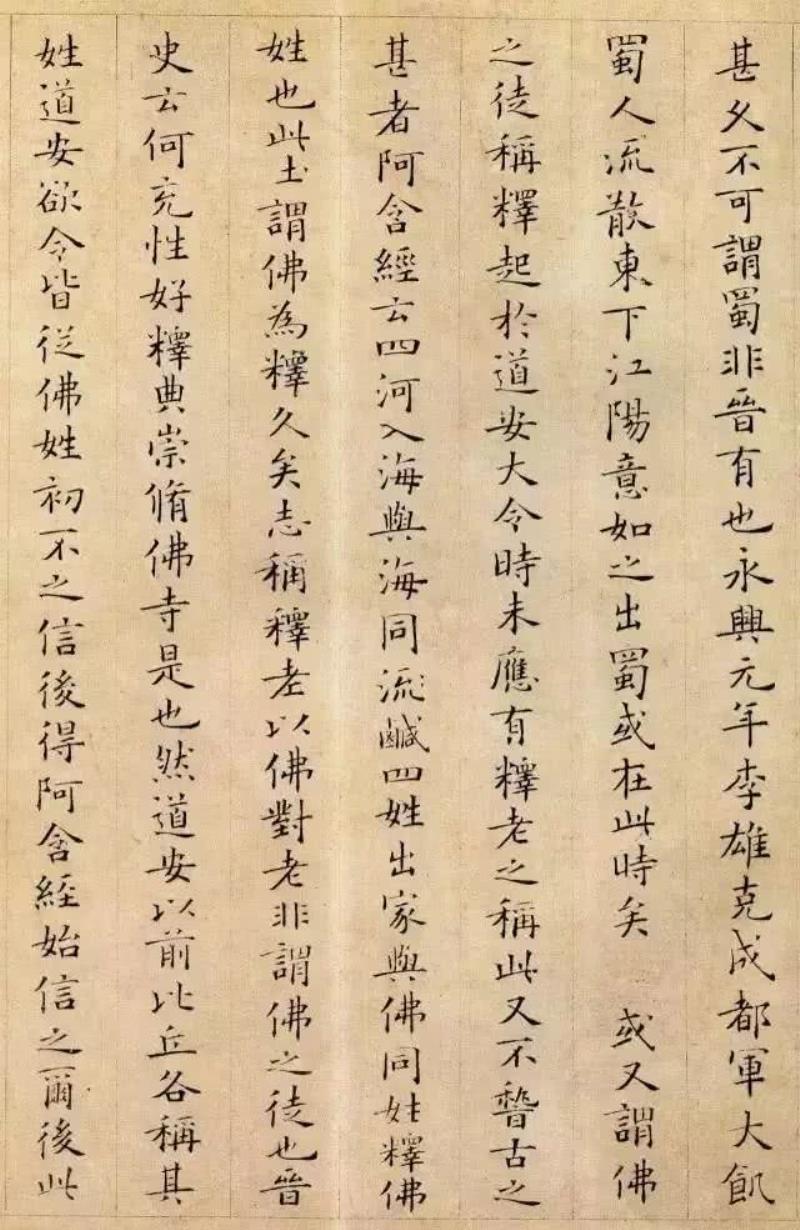 甚久不可謂蜀非晉有也永興元年李雄克成都軍大飢
蜀人流散東下江陽意如之出蜀或在此時矣 或又謂佛
之徒稱釋起於道安大令時未應有釋老之稱此又不稽古之
甚者阿含經云四河入海與海同流鹹四姓出家與佛同姓釋佛
姓也此土謂佛為釋久矣志稱釋老以佛對老非謂佛之徒也晉
史云何充性好釋典崇脩佛寺是也然道安以前比丘各稱其
姓道安欲令皆從佛姓初不之信後得阿含經始信之爾後此